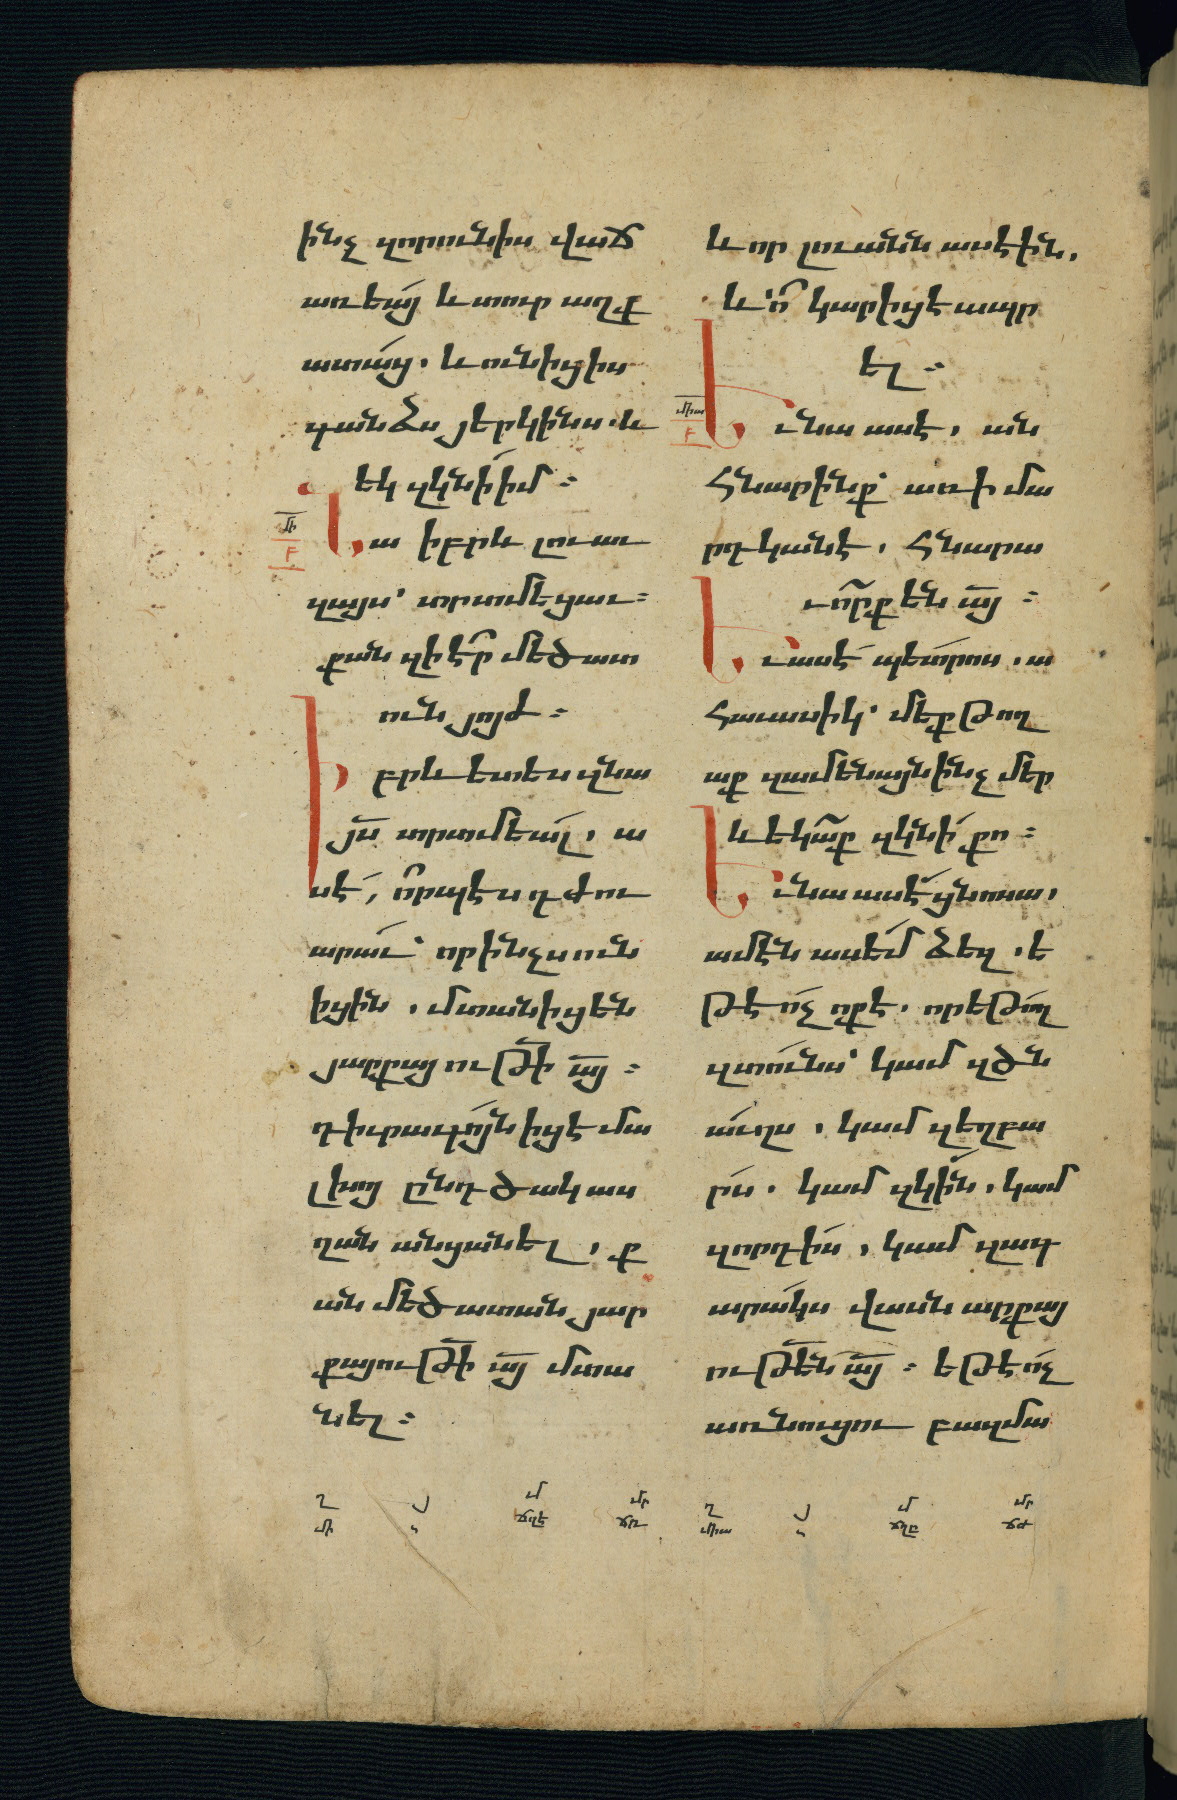 ինչ զորունիս վաճ
առեա՛ց և տուր աղք
ատա՛ց. և ունիցիս
գանձս յերկինս. և
եկ զկնի՛ իմ։
Նա իբրև լուաւ
զայս՝ տրտմեցաւ։
քանզի է՛ր մեծատ
ուն յոյժ։
Իբրև ետես զնա
յ̅ս տրտմեալ, ա
սէ, ո՞րպէս դժու
արաւ՝ որ ինչս ուն
իցին, մտանիցեն
յարքայութի̅ ա̅յ։
դիւրագոյն իցէ մա
լխոյ ընդ ծակ աս
ղան անցանել, ք
ան մեծատան յար
քայութի̅ ա̅յ մտա
նել։
և որ լուանն ասէին.
և ո՞ կարիցէ ապր
ել։
Եւ նա ասէ. ան
հնարինք՝ առ ի մա
րդկանէ, հնարա
ւո̅րք են ա̅յ։
Եւ ասէ պետրոս. ա
հաւասիկ՝ մեք թող
աք զամենայն ինչ մեր
և եկաք զկնի՛ քո։
Եւ նա ասէ ցնոսա,
ամէն ասեմ ձեզ. ե
թէ ո՛չ ոք է. որ եթող
զտունս՝ կամ զծն
աւղս, կամ զեղբա
րս. կամ զկին, կամ
զորդիս, կամ զագ
արակս վասն արքայ
ութե̅ն ա̅յ։ եթէ ո՛չ
առնուցու բազմա